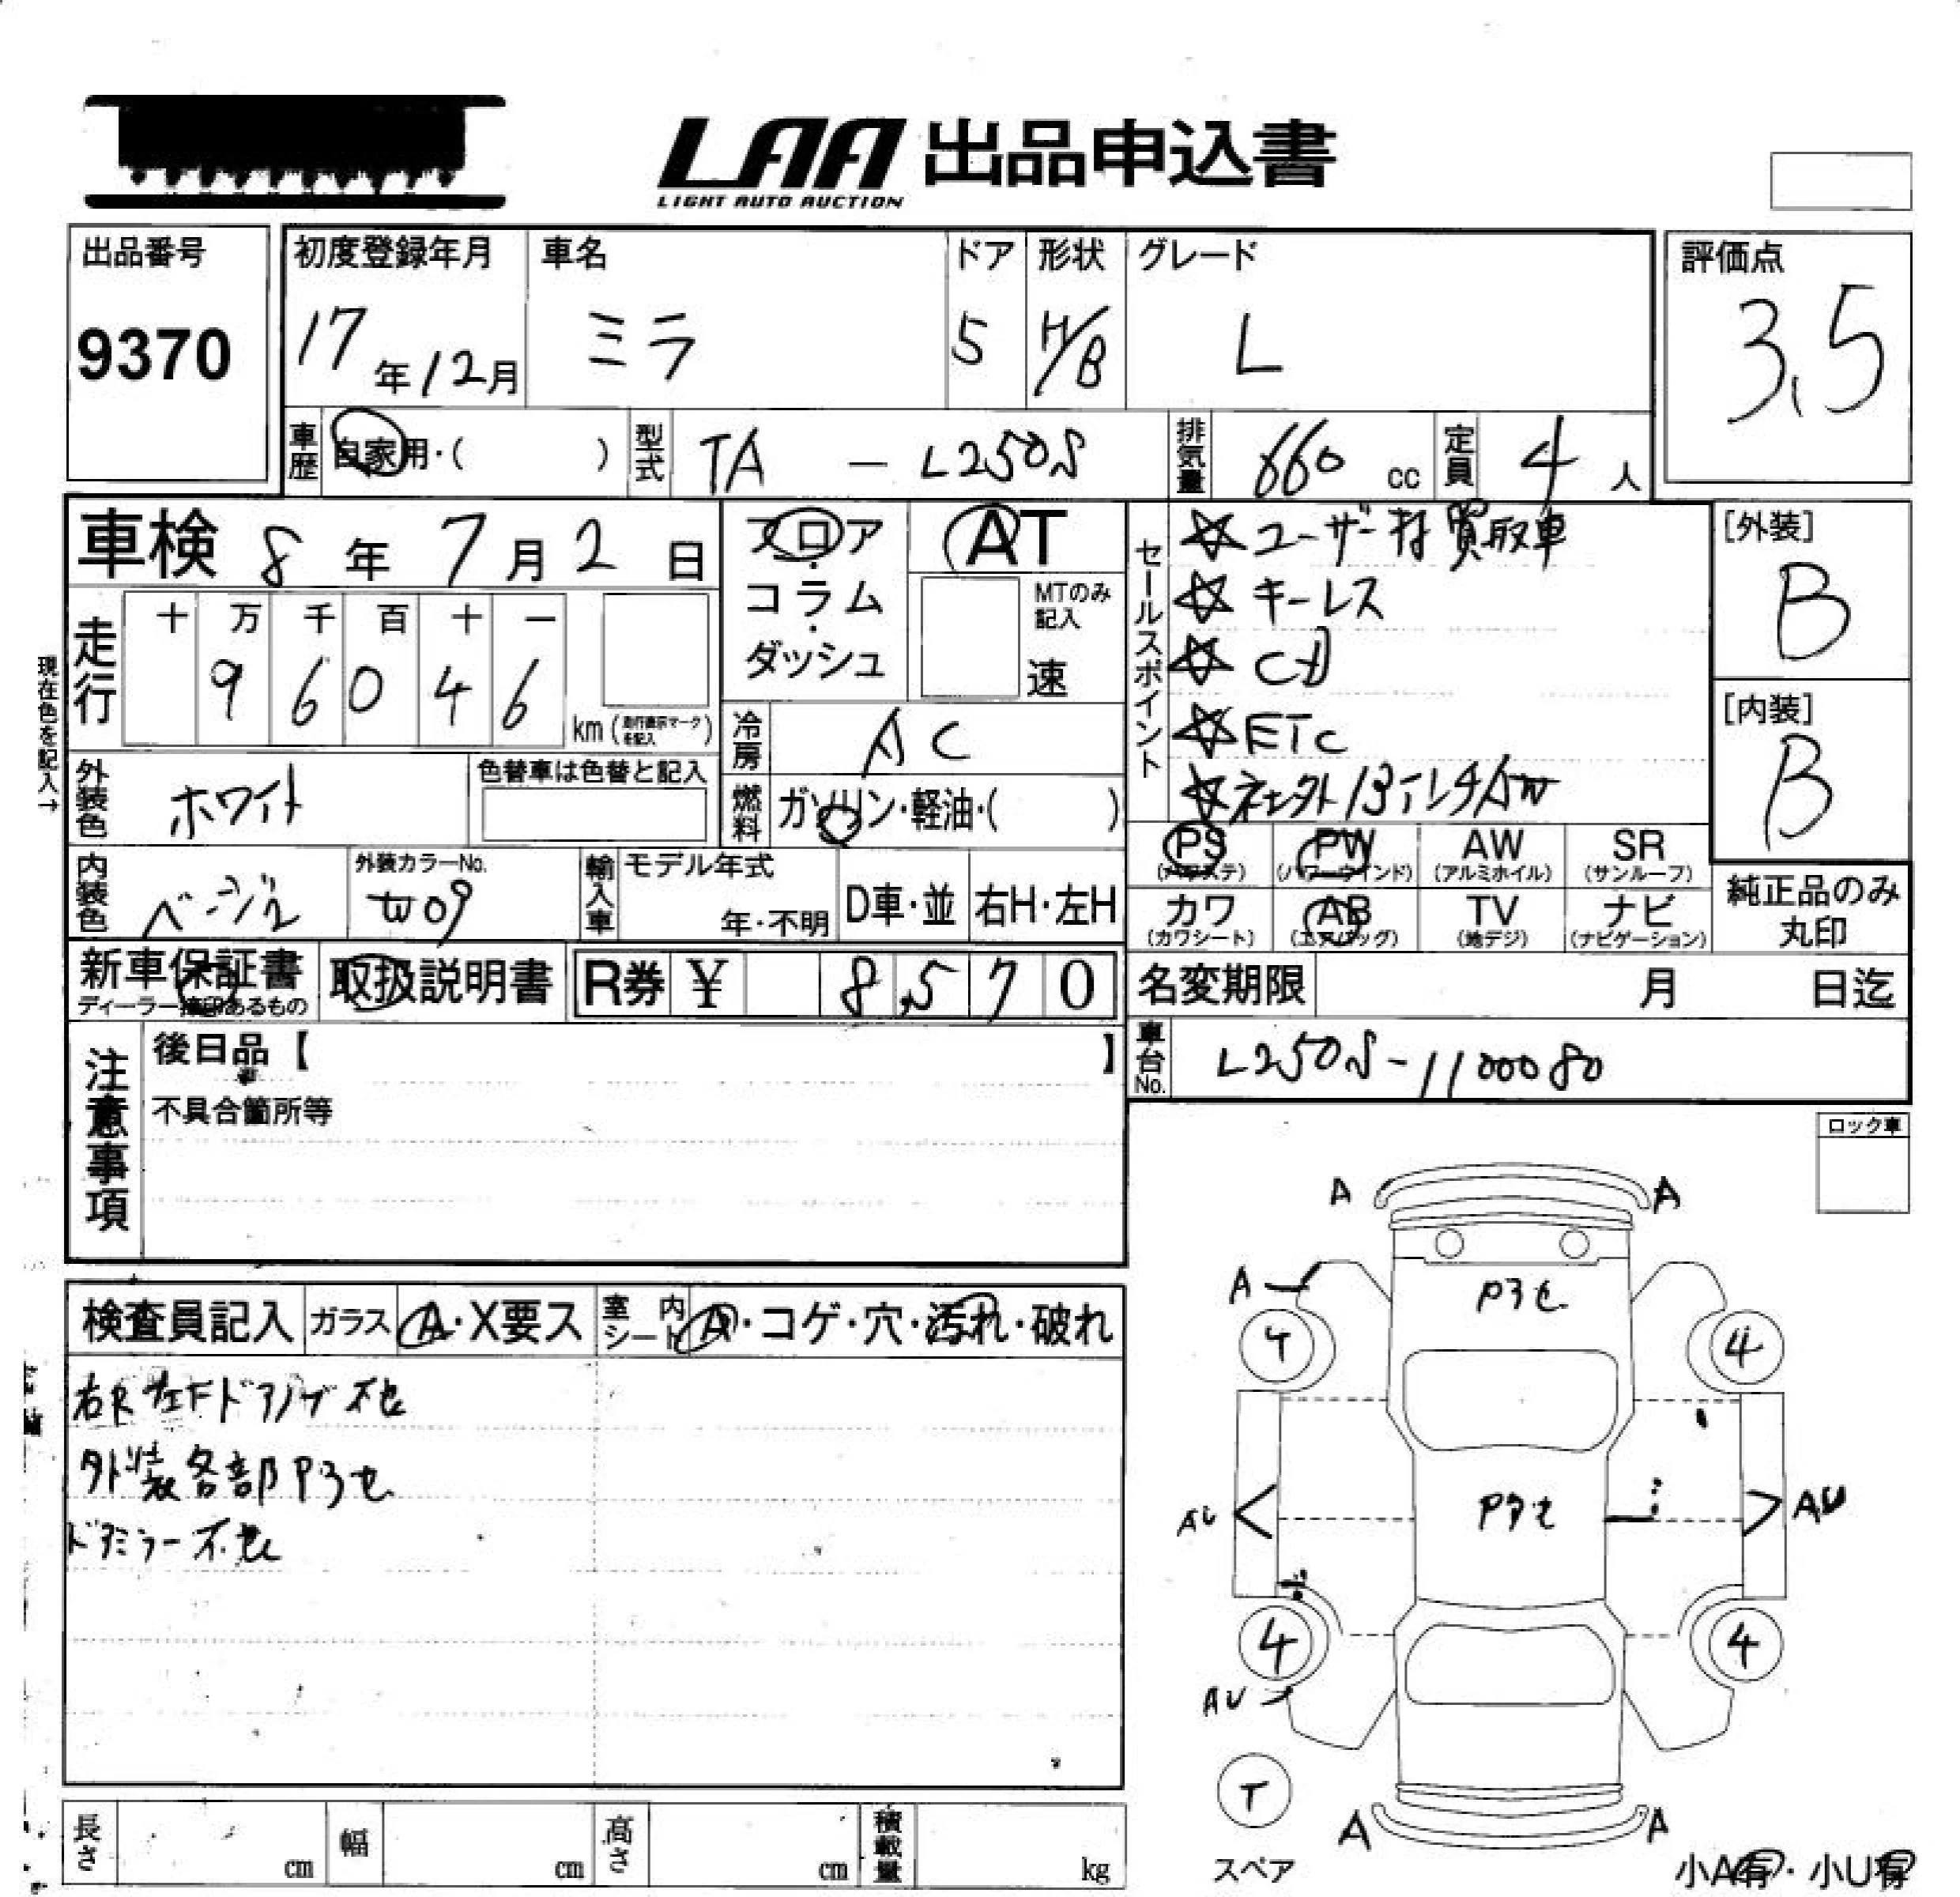 LAA 出品申込書
LIGHT AUTO AUCTION
出品番号
9370
初度登録年月
17年12月
車名
ミラ
ドア
5
形状
H/B
グレード
L
評価点
3.5
車歴 自家用・( )
型式 TA - L250S
排気量 660 cc
定員 4人
車検 8年7月2日
フロア・コラム・ダッシュ
AT
MTのみ記入
速
セールスポイント
☆ユーザー様買取車
☆キーレス
☆CD
☆ETC
[外装]
B
[内装]
B
現在色を記入→
走行
十 万 千 百 十 一
9 6 0 4 6
km (走行表示マークを記入)
冷房 AC
外装色 ホワイト
色替車は色替と記入
燃料 ガソリン・軽油・( )
内装色 ベージュ
外装カラーNo.
W09
輸入車
モデル年式
年・不明
D車・並
右H・左H
PS (パワステ)
PW (パワーウインド)
AW (アルミホイル)
SR (サンルーフ)
カワ (カワシート)
AB (エアバッグ)
TV (地デジ)
ナビ (ナビゲーション)
純正品のみ丸印
新車保証書
ディーラー捺印あるもの
取扱説明書
R券 ¥ 8,570
名変期限 月 日迄
車台No. L250S-1100080
注意事項
後日品【 】
不具合箇所等
ロック車
検査員記入
ガラス A・X要ス
室内シート A・コゲ・穴・汚れ・破れ
右R左Fドアノブ不色
外装各部Pヨセ
ドアミラー不色
A A
A
Pヨセ
4 4
Pヨセ
AU AU
4 4
AU
T
スペア
A A
小A有・小U有
長さ cm
幅 cm
高さ cm
積載量 kg